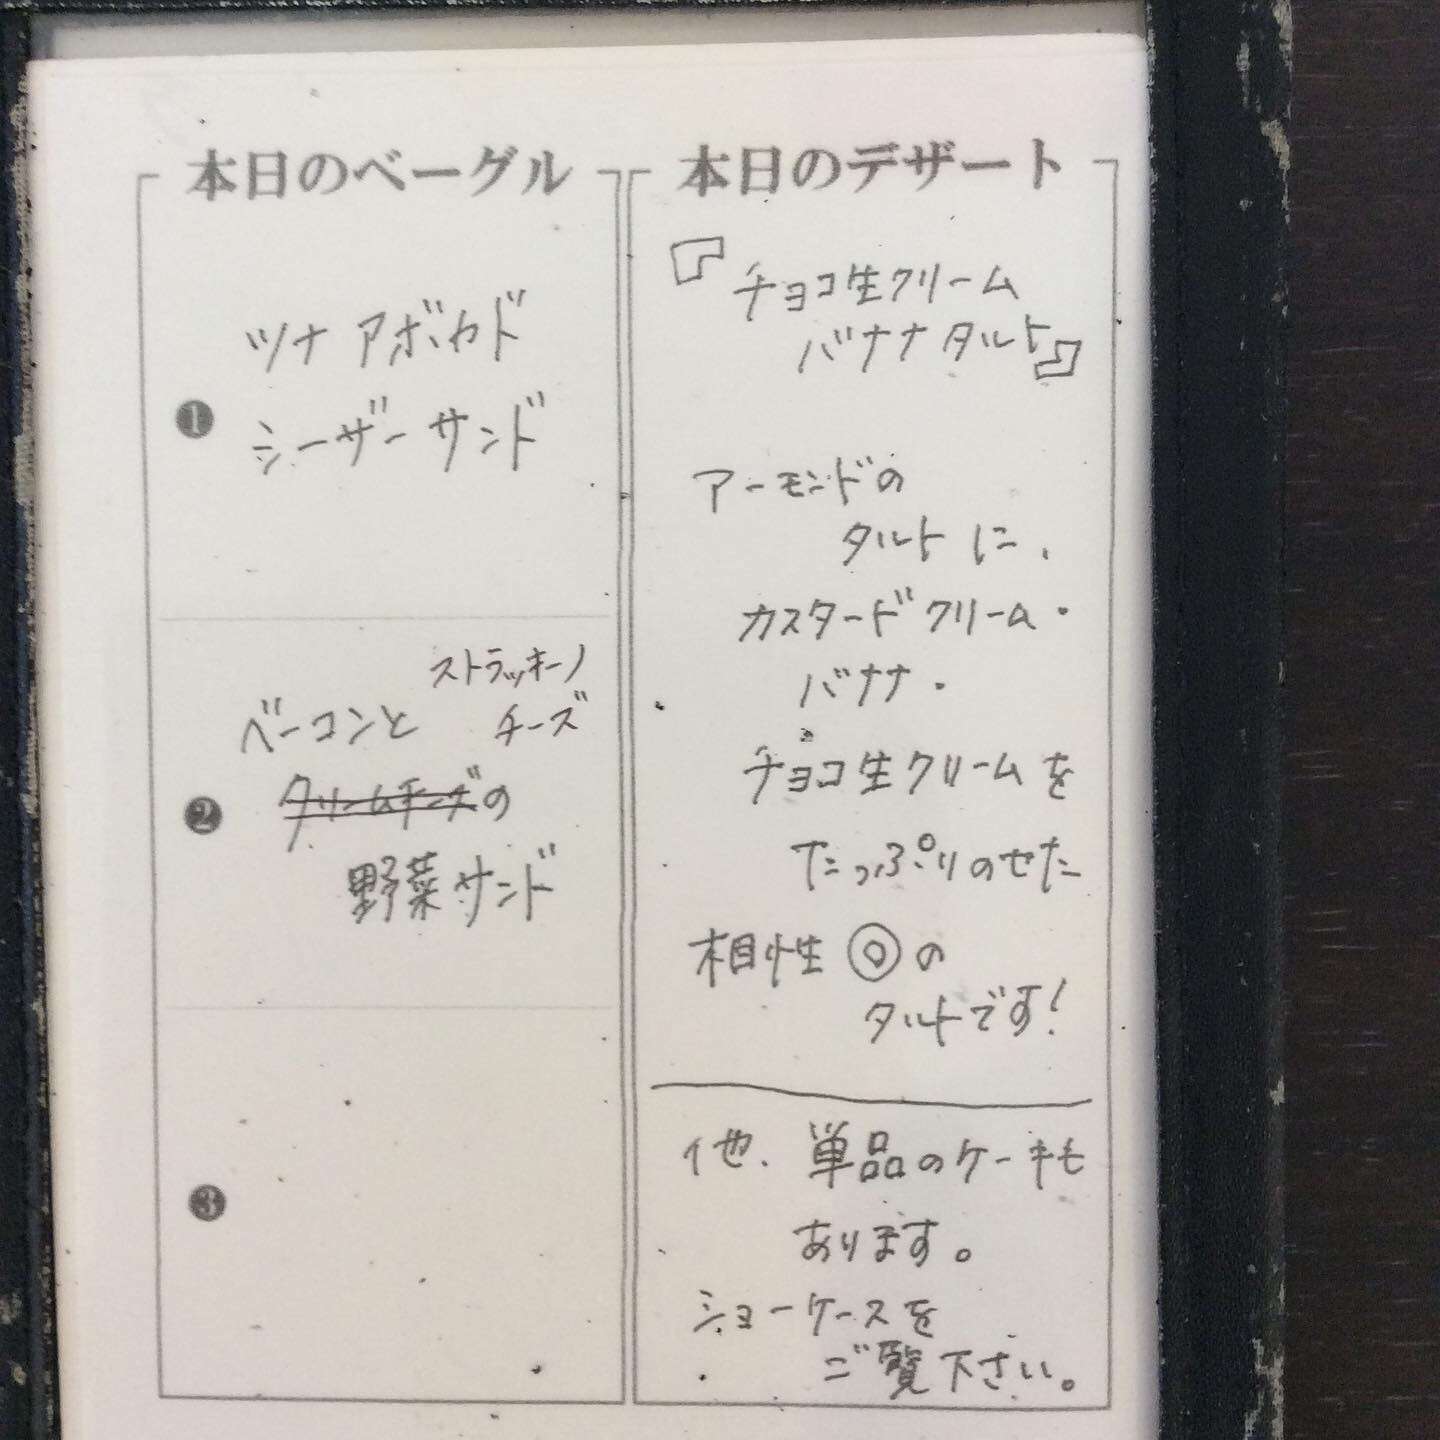 本日のベーグル
❶
ツナアボカド
シーザーサンド
❷
ストラッキーノ
ベーコンと チーズ
クリームチーズの
野菜サンド
❸
本日のデザート
『チョコ生クリーム
バナナタルト』
アーモンドの
タルトに、
カスタードクリーム・
バナナ・
チョコ生クリームを
たっぷりのせた
相性◎の
タルトです!
他、単品のケーキも
あります。
ショーケースを
ご覧下さい。